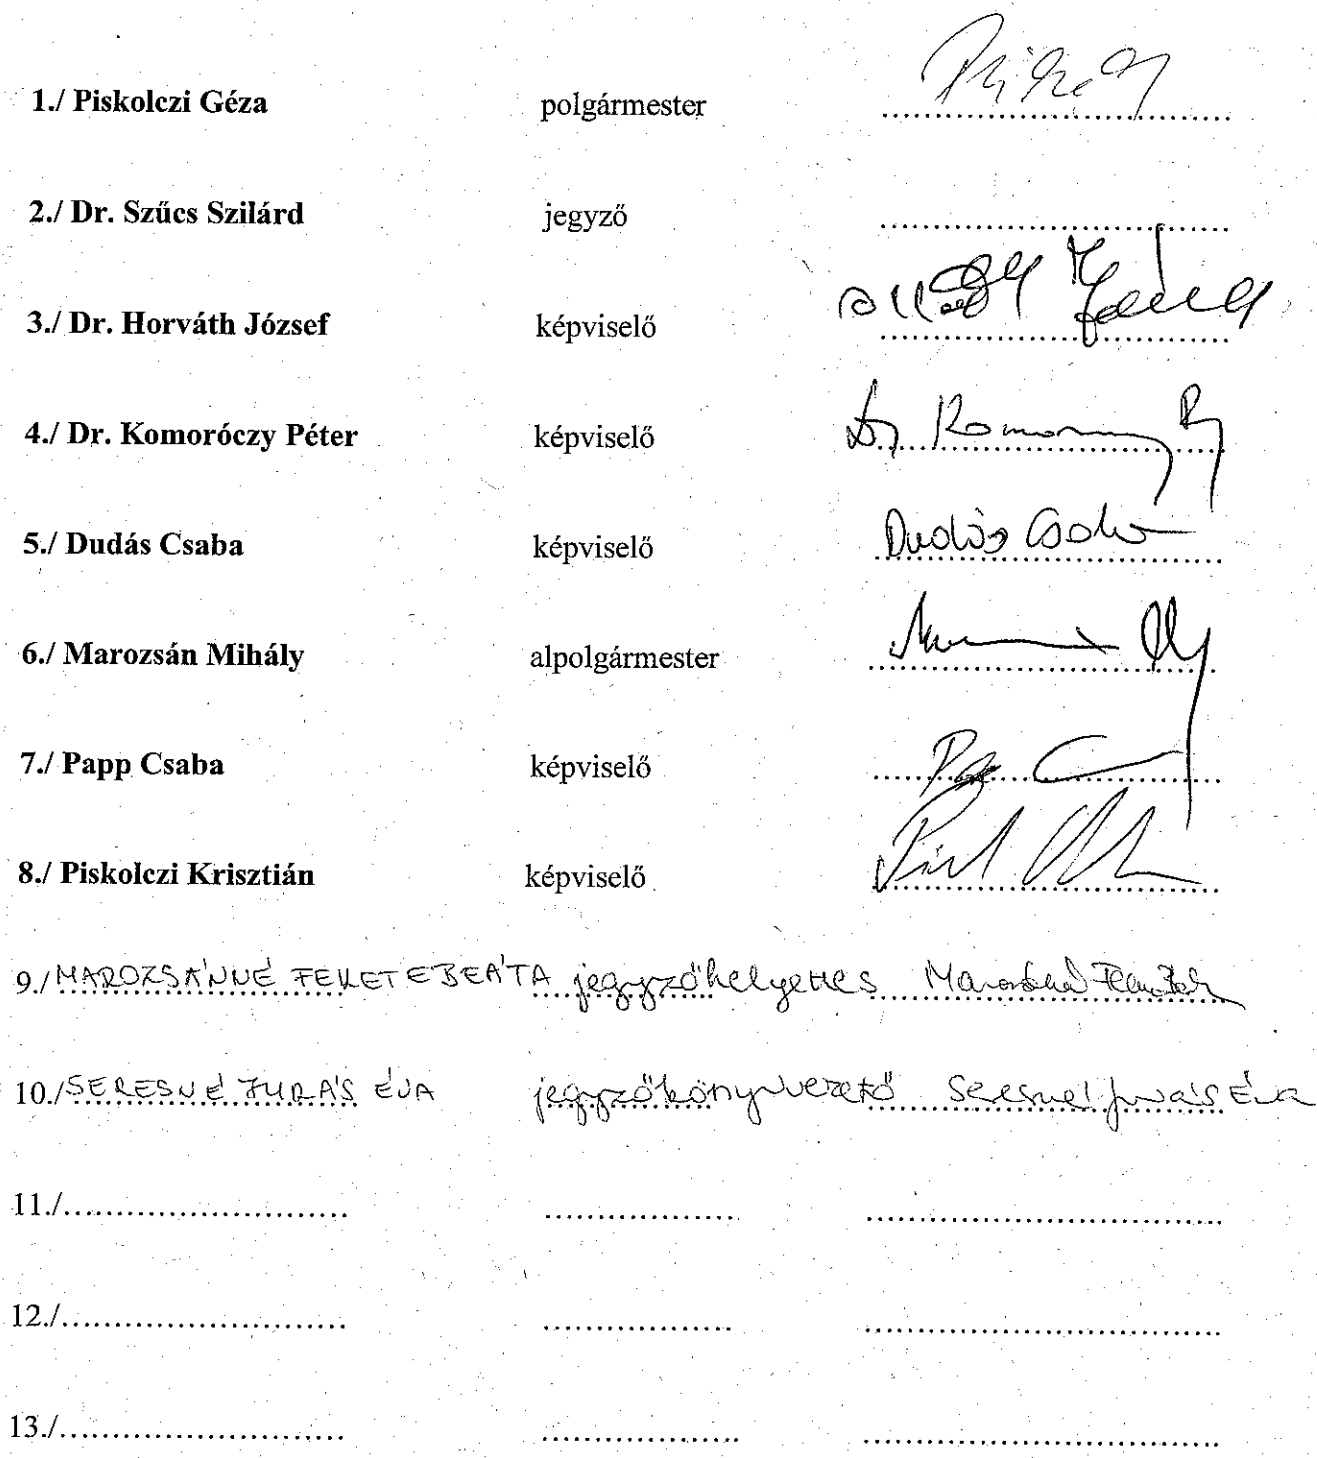 1./ Piskolczi Géza polgármester
2./ Dr. Szűcs Szilárd jegyző ....................
3./ Dr. Horváth József képviselő
4./ Dr. Komoróczy Péter képviselő Dr. Komoróczy P
5./ Dudás Csaba képviselő Dudás Csaba
6./ Marozsán Mihály alpolgármester
7./ Papp Csaba képviselő
8./ Piskolczi Krisztián képviselő
9./ MAROZSÁNNÉ FEKETE BEÁTA jegyzőhelyettes
10./ SERESNÉ JUHÁS ÉVA jegyzőkönyvvezető Seresné Juhás Éva
11./.................... .................... ....................
12./.................... .................... ....................
13./.................... .................... ....................